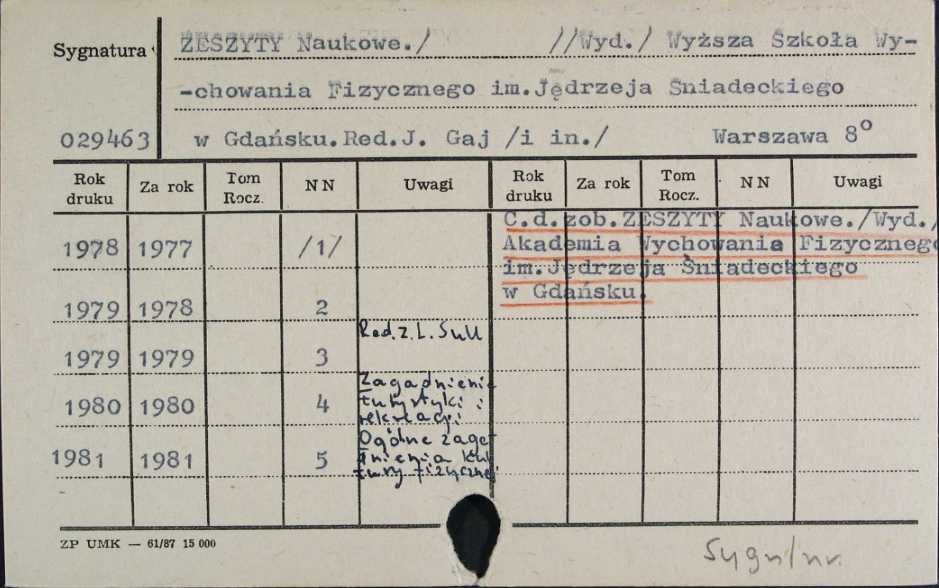 Sygnatura ZESZYTY Naukowe./ //Wyd./ Wyższa Szkoła Wy-
-chowania Fizycznego im.Jędrzeja Sniadeckiego
029463 w Gdańsku.Red.J. Gaj /i in./ Warszawa 8°
Rok druku Za rok Tom Rocz. NN Uwagi Rok druku Za rok Tom Rocz. NN Uwagi
C.d.zob.ZESZYTY Naukowe./Wyd./
1978 1977 /1/ Akademia Wychowania Fizycznego
im.Jędrzeja Śniadeckiego
w Gdańsku.
1979 1978 2
Red. z. L. Sull
1979 1979 3
Zagadnienia
1980 1980 4 turystyki i
rekreacji
Ogólne zaga-
1981 1981 5 dnienia kul
tury fizycznej
ZP UMK — 61/87 15 000
Sygn/nr.